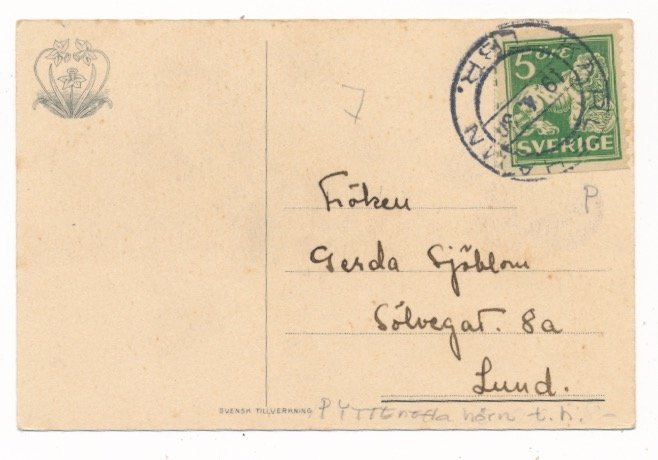 5 ÖRE
SVERIGE
LBR.
J
P.
Fröken
Gerda Sjöblom
Sölvegat. 8a
Lund.
SVENSK TILLVERKNING
hörn t.h.